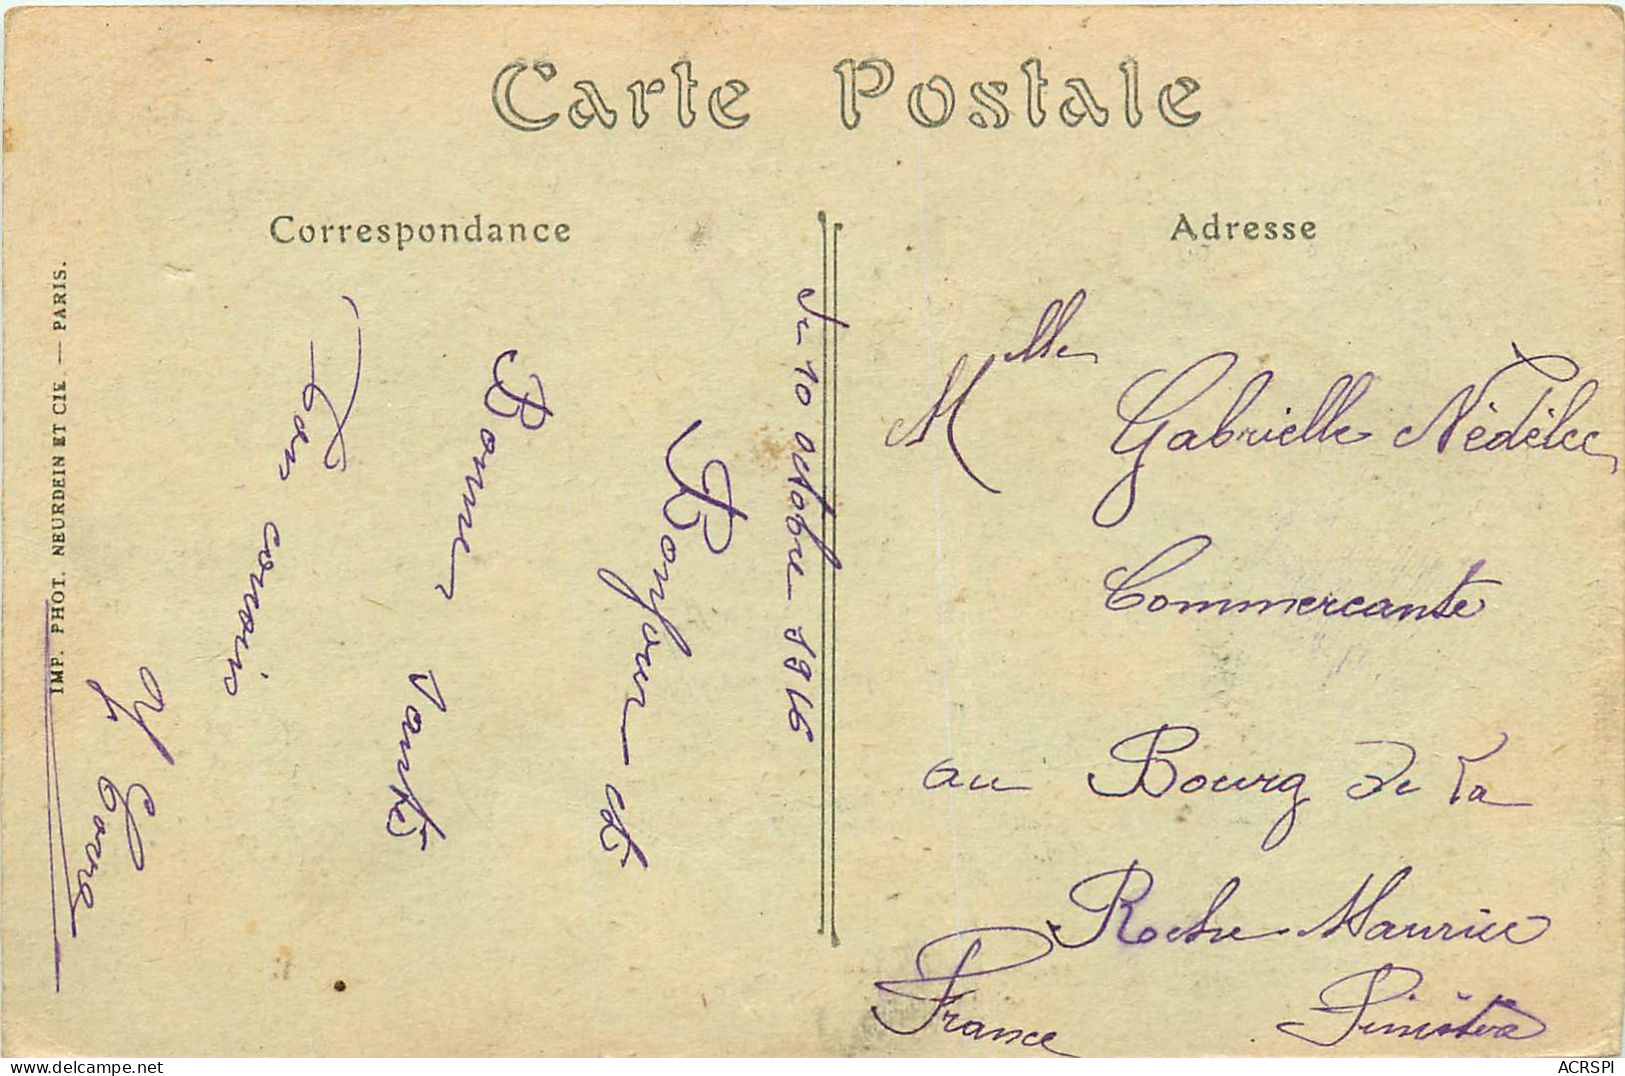 Carte Postale
Correspondance
Adresse
IMP. PHOT. NEURDEIN ET CIE. — PARIS.
Du 10 octobre 1916
Bonjour et
Bonne santé
Ton cousin
Y Corre
Melle Gabrielle Nédélec
Commercante
au Bourg de La
Roche Maurice
France Finistère
ACRSPI